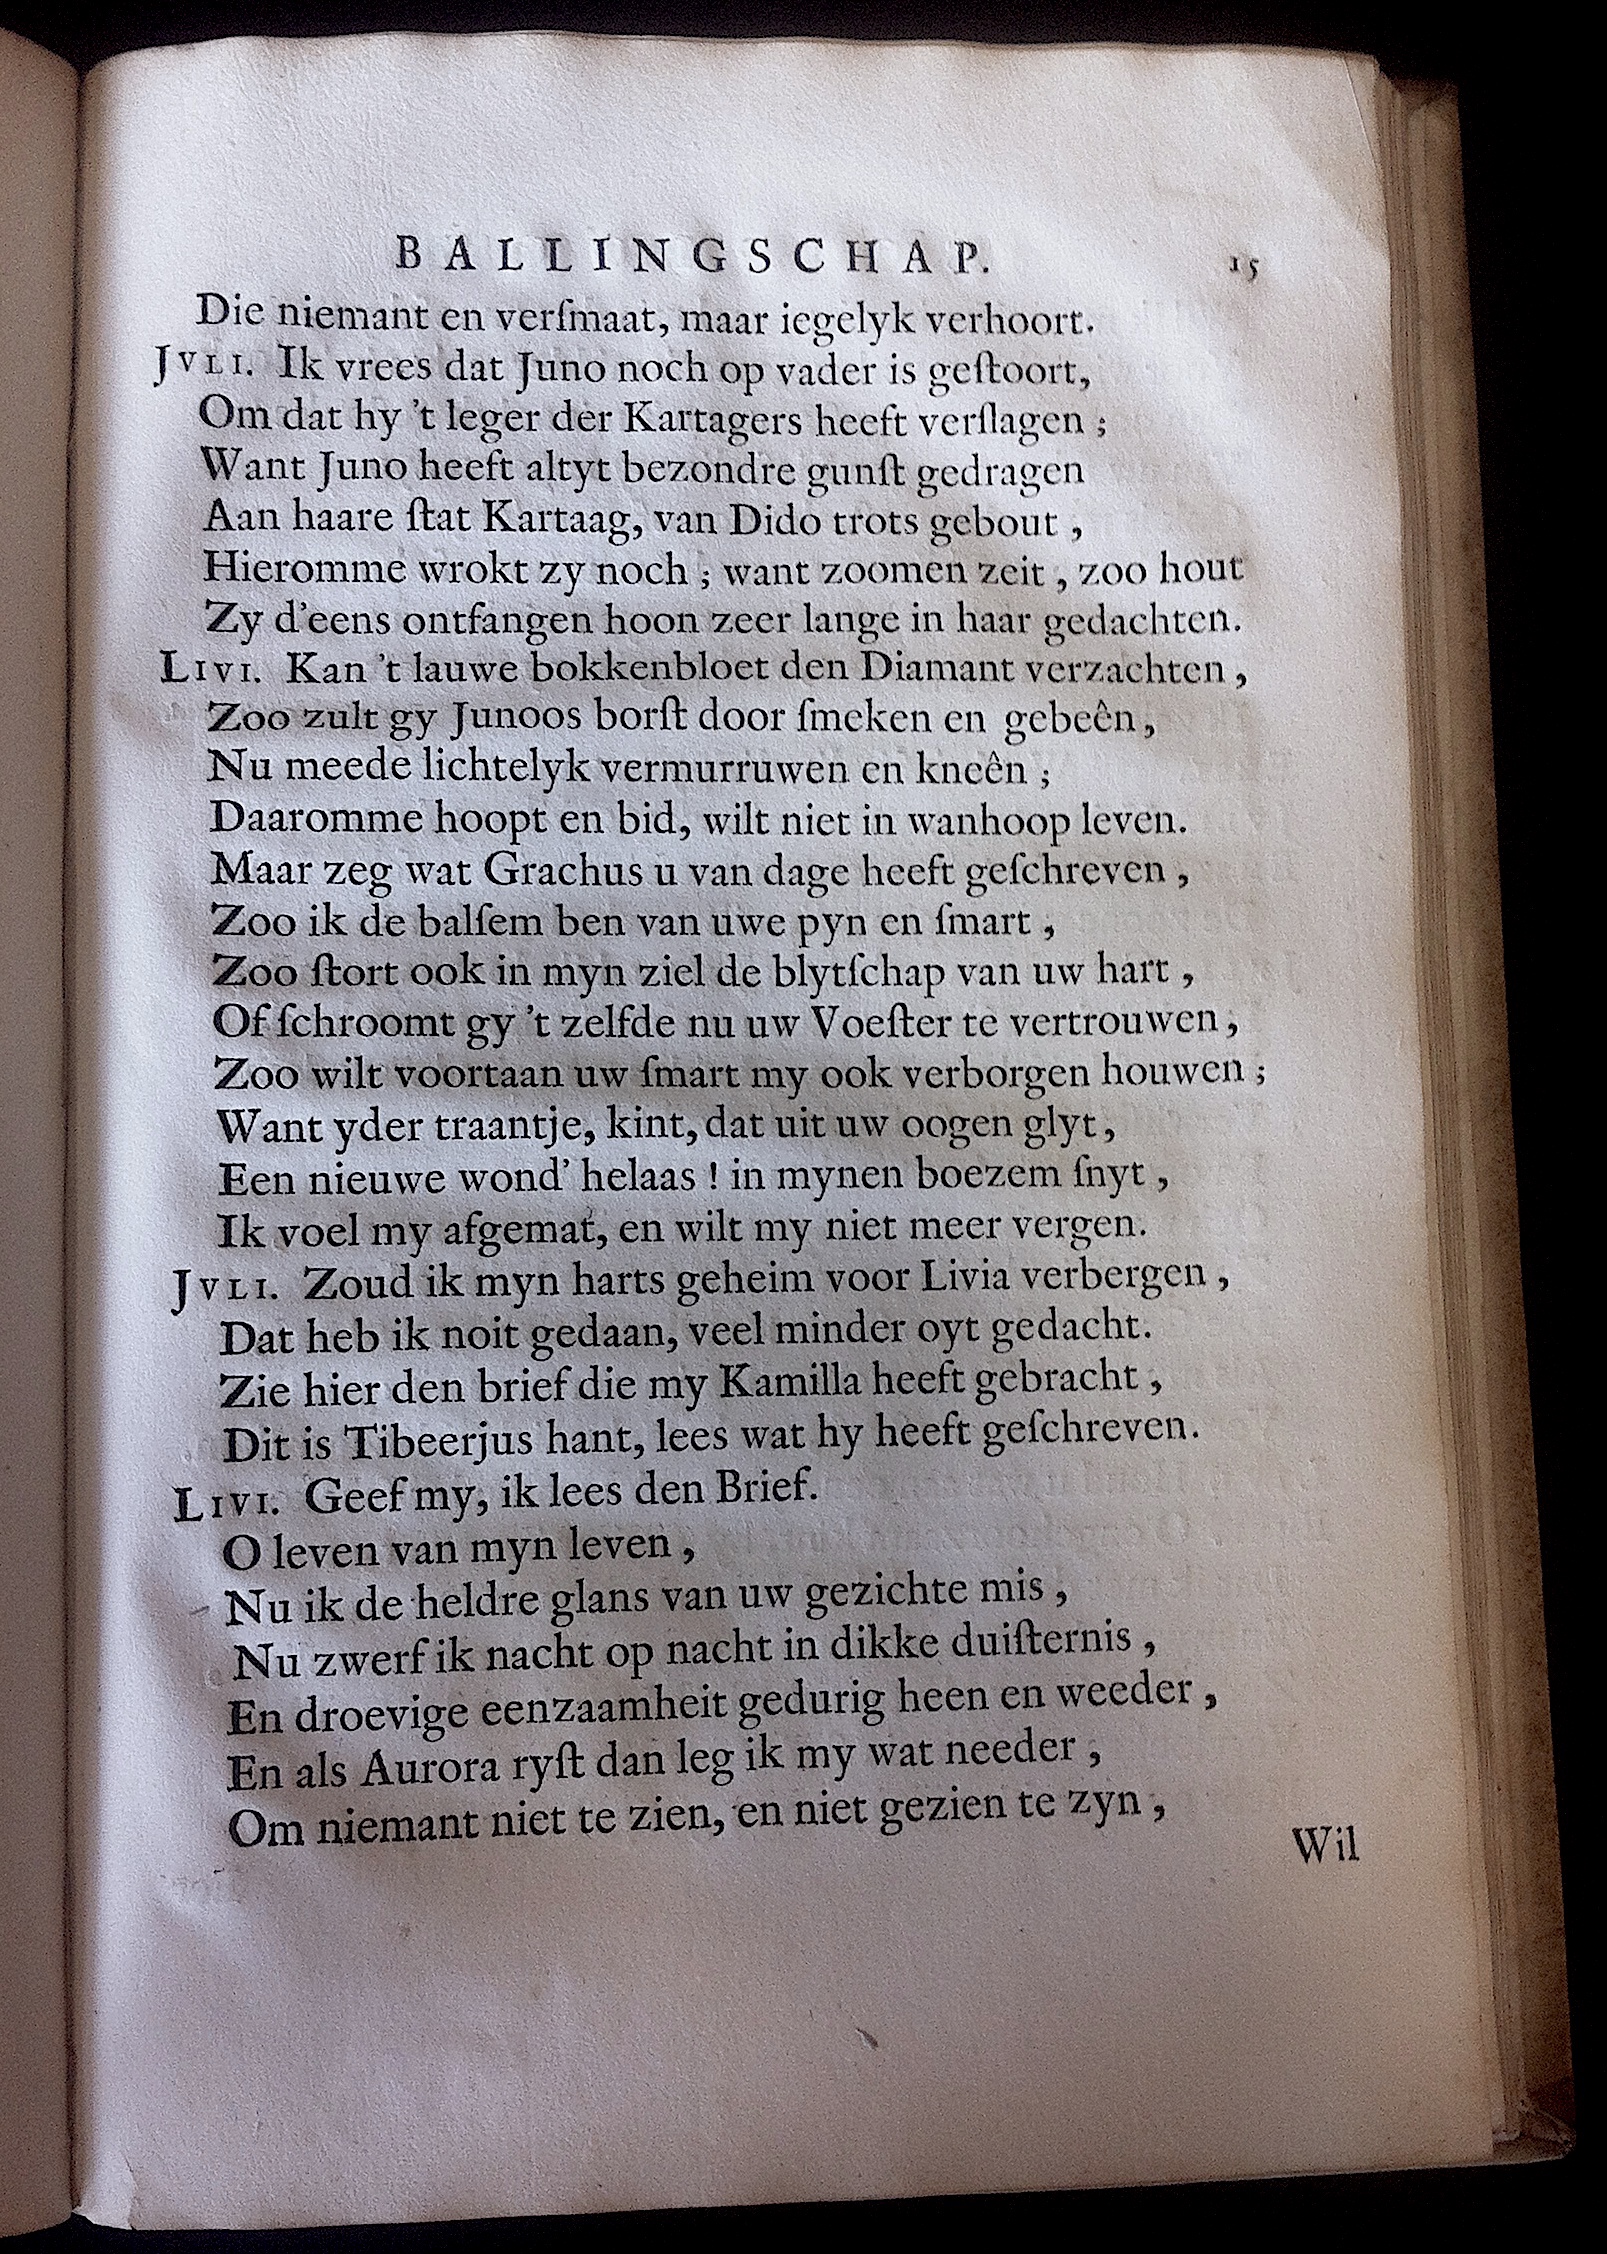 BALLINGSCHAP. 15
Die niemant en verſmaat, maar iegelyk verhoort.
JVLI. Ik vrees dat Juno noch op vader is geſtoort,
Om dat hy 't leger der Kartagers heeft verſlagen ;
Want Juno heeft altyt bezondre gunſt gedragen
Aan haare ſtat Kartaag, van Dido trots gebout ,
Hieromme wrokt zy noch ; want zoomen zeit , zoo hout
Zy d'eens ontfangen hoon zeer lange in haar gedachten.
LIVI. Kan 't lauwe bokkenbloet den Diamant verzachten ,
Zoo zult gy Junoos borſt door ſmeken en gebeên,
Nu meede lichtelyk vermurruwen en kneên ;
Daaromme hoopt en bid, wilt niet in wanhoop leven.
Maar zeg wat Grachus u van dage heeft geſchreven ,
Zoo ik de balſem ben van uwe pyn en ſmart ,
Zoo ſtort ook in myn ziel de blytſchap van uw hart ,
Of ſchroomt gy 't zelfde nu uw Voeſter te vertrouwen,
Zoo wilt voortaan uw ſmart my ook verborgen houwen ;
Want yder traantje, kint, dat uit uw oogen glyt,
Een nieuwe wond' helaas ! in mynen boezem ſnyt ,
Ik voel my afgemat, en wilt my niet meer vergen.
JVLI. Zoud ik myn harts geheim voor Livia verbergen ,
Dat heb ik noit gedaan, veel minder oyt gedacht.
Zie hier den brief die my Kamilla heeft gebracht ,
Dit is Tibeerjus hant, lees wat hy heeft geſchreven.
LIVI. Geef my, ik lees den Brief.
O leven van myn leven ,
Nu ik de heldre glans van uw gezichte mis ,
Nu zwerf ik nacht op nacht in dikke duiſternis ,
En droevige eenzaamheit gedurig heen en weeder ,
En als Aurora ryſt dan leg ik my wat needer ,
Om niemant niet te zien, en niet gezien te zyn ,
Wil